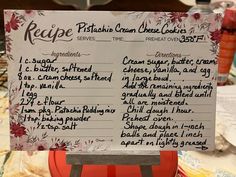 Recipe Pistachio Cream Cheese Cookies
SERVES: TIME: PREHEAT OVEN: 350°F
Ingredients
1 c. sugar
1 c. butter, softened
8 oz. cream cheese, softened
1 tsp. vanilla
1 egg
2 1/4 c. flour
1 sm. pkg. Pistachio Pudding mix
1 tsp. baking powder
1/2 tsp. salt
Directions
Cream sugar, butter, cream
cheese, vanilla, and egg
in large bowl.
Add the remaining ingredients
gradually and blend until
all are moistened.
Chill dough 1 hour.
Preheat oven.
Shape dough in 1-inch
balls and place 1 inch
apart on lightly greased